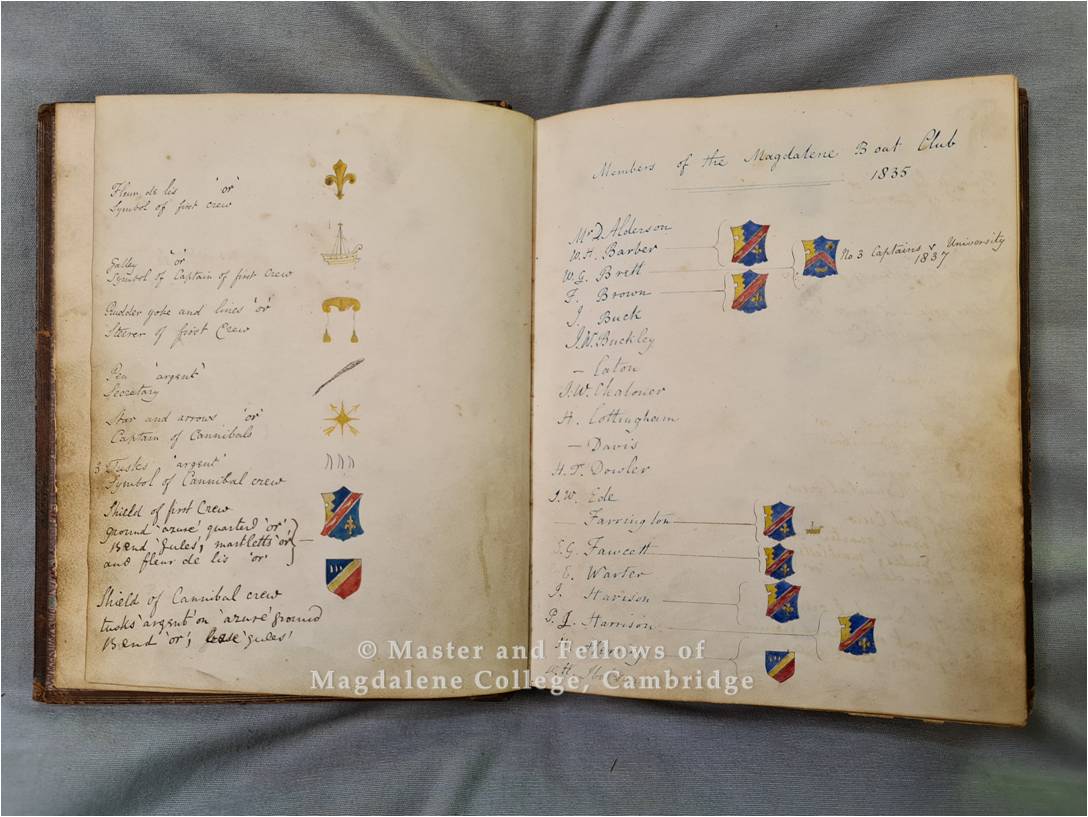 Fleur de lis 'or'
Symbol of first crew
Galley 'or'
Symbol of Captain of first Crew
Rudder yoke and lines 'or'
Steerer of first Crew
Pen 'argent'
Secretary
Star and arrows 'or'
Captain of Cannibals
3 Tusks 'argent'
Symbol of Cannibal crew
Shield of first Crew
ground 'azure' quarterd 'or'
Bend 'gules', martletts 'or'
and fleur de lis 'or'
Shield of Cannibal crew
tusks 'argent' on 'azure' ground
Bend 'or', base 'gules'
Members of the Magdalene Boat Club
1835
Mr Alderson
W. H. Barber
W. G. Brett
No 3 Captains & University
1837
F. Brown
J. Buck
J. W. Buckley
— Eaton
J. W. Chaloner
H. Cottingham
— Davis
H. T. Dowler
J. W. Ede
Farrington
S. G. Fawcett
E. Warter
J. Harison
P. J. Harrison
© Master and Fellows of
Magdalene College, Cambridge